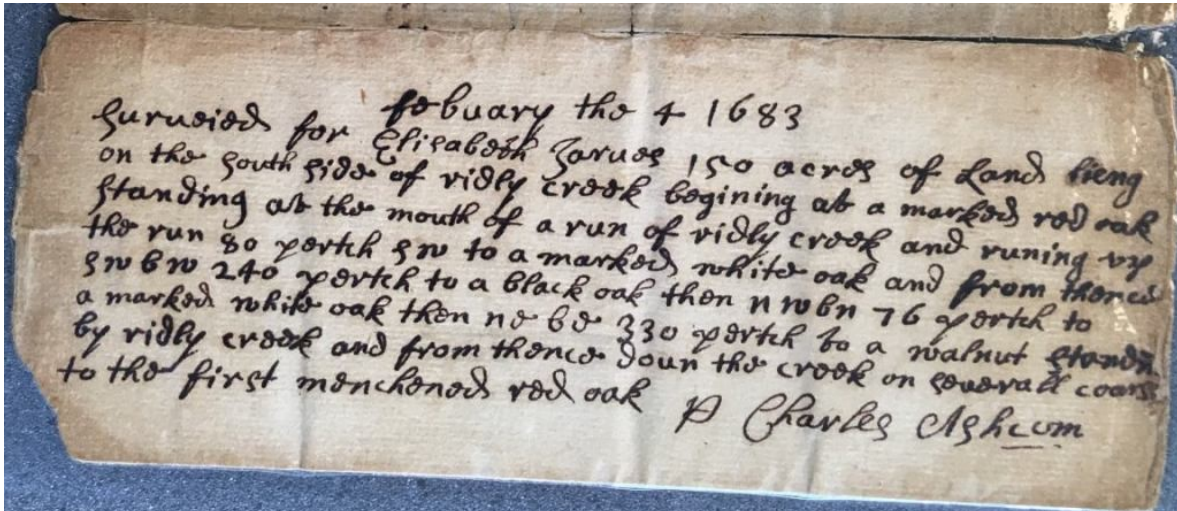 february the 4 1683
Surveied for Elisabeth Jarves 150 acres of Land lieng
on the south side of ridly creek begining at a marked red oak
standing at the mouth of a run of ridly creek and runing up
the run 80 pertch sw to a marked white oak and from thence
swbw 240 pertch to a black oak then nwbn 76 pertch to
a marked white oak then nebe 330 pertch to a walnut
by ridly creek and from thence doun the creek on severall
to the first menchened red oak
P Charles Ashcom